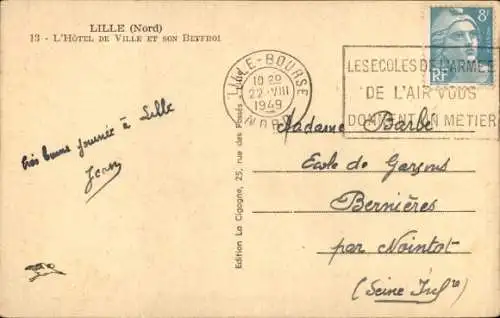 LILLE (Nord)
13 - L'HÔTEL DE VILLE ET SON BEFFROI
8F
RF
LILLE-BOURSE
10 20
22-VIII
1949
NORD
LES ECOLES DE L'ARMEE
DE L'AIR VOUS
DONNENT UN METIER
très bonne journée à Lille
Jean
Edition La Cigogne, 25, rue des Fossés - Lille
Madame Barbé
Ecole de Garçons
Bernières
par Nointot
(Seine Infre)